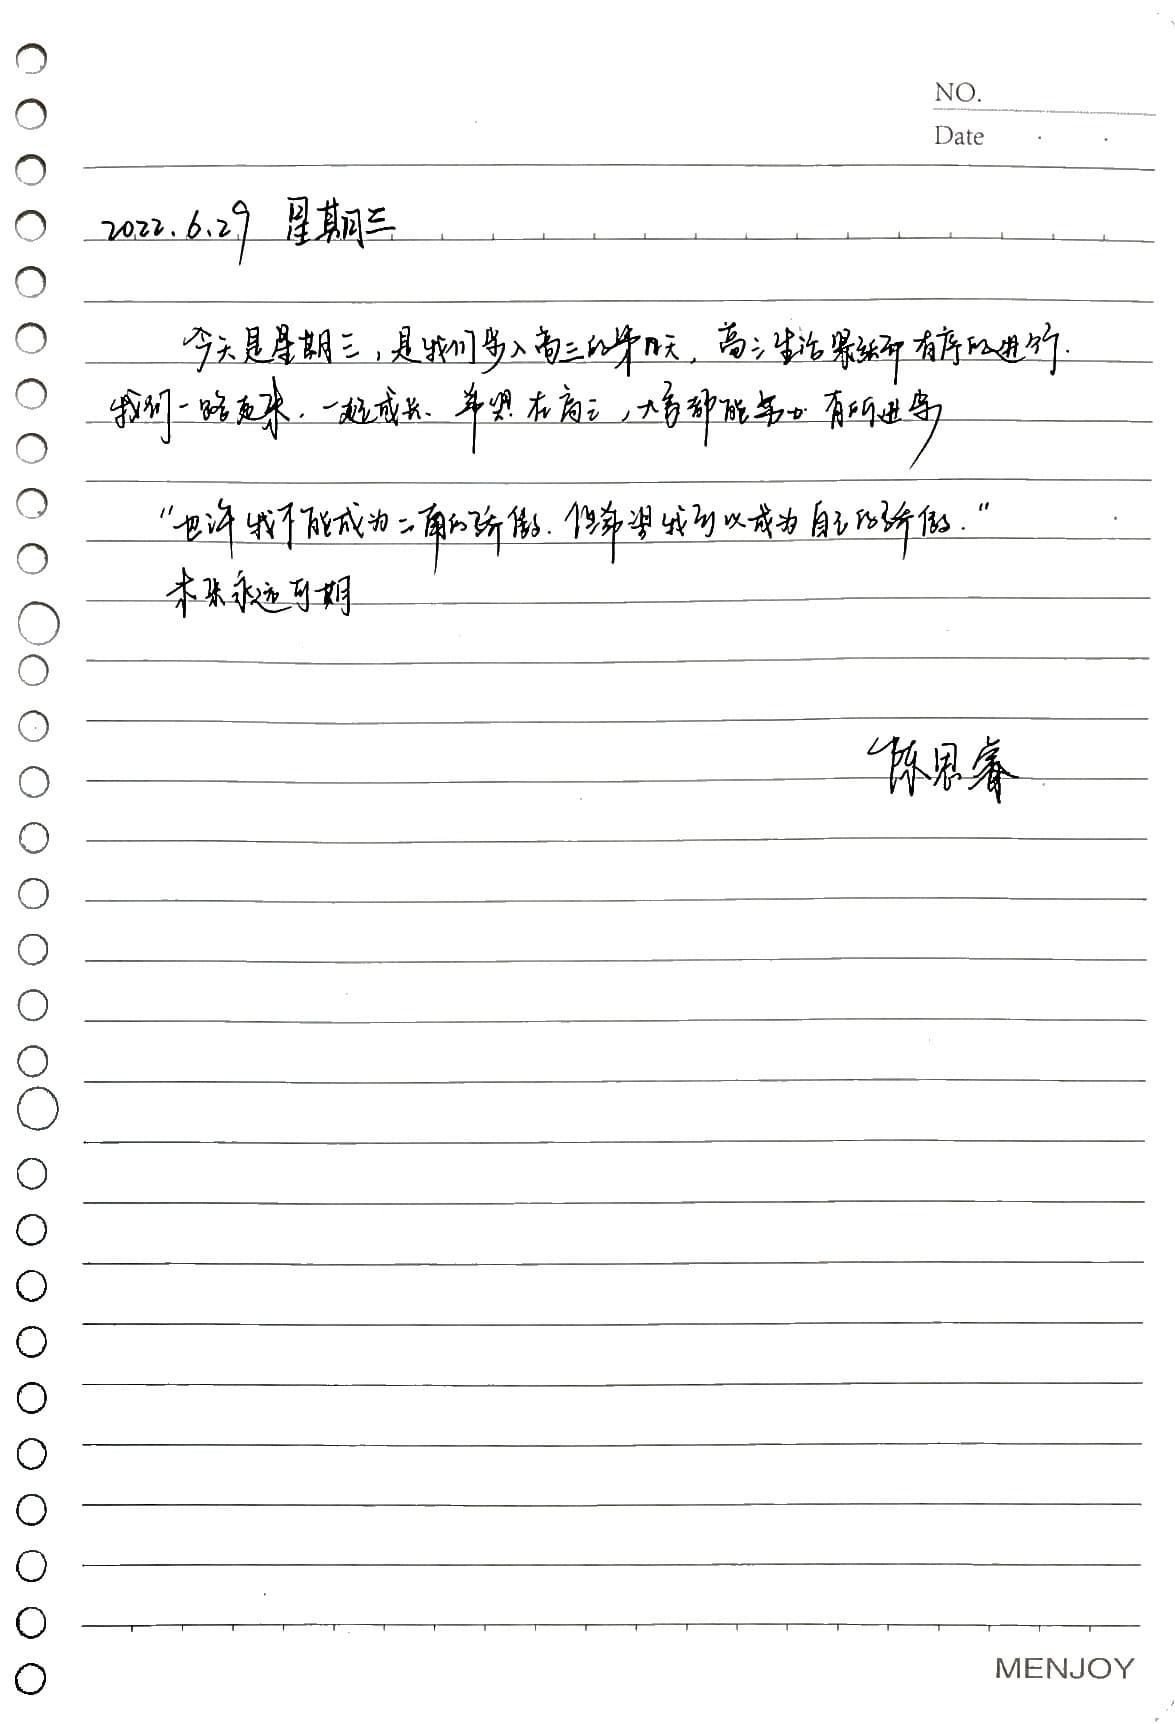 NO.
Date
2022.6.29 星期三
今天是星期三,是我们步入高三的第 天,高三生活紧张而有序的进行.
我们一路走来,一起成长.希望在高三,大家都能努力 有所进步
“也许我不能成为二南的骄傲.但希望我可以成为自己的骄傲.”
未来永远可期
陈思睿
MENJOY